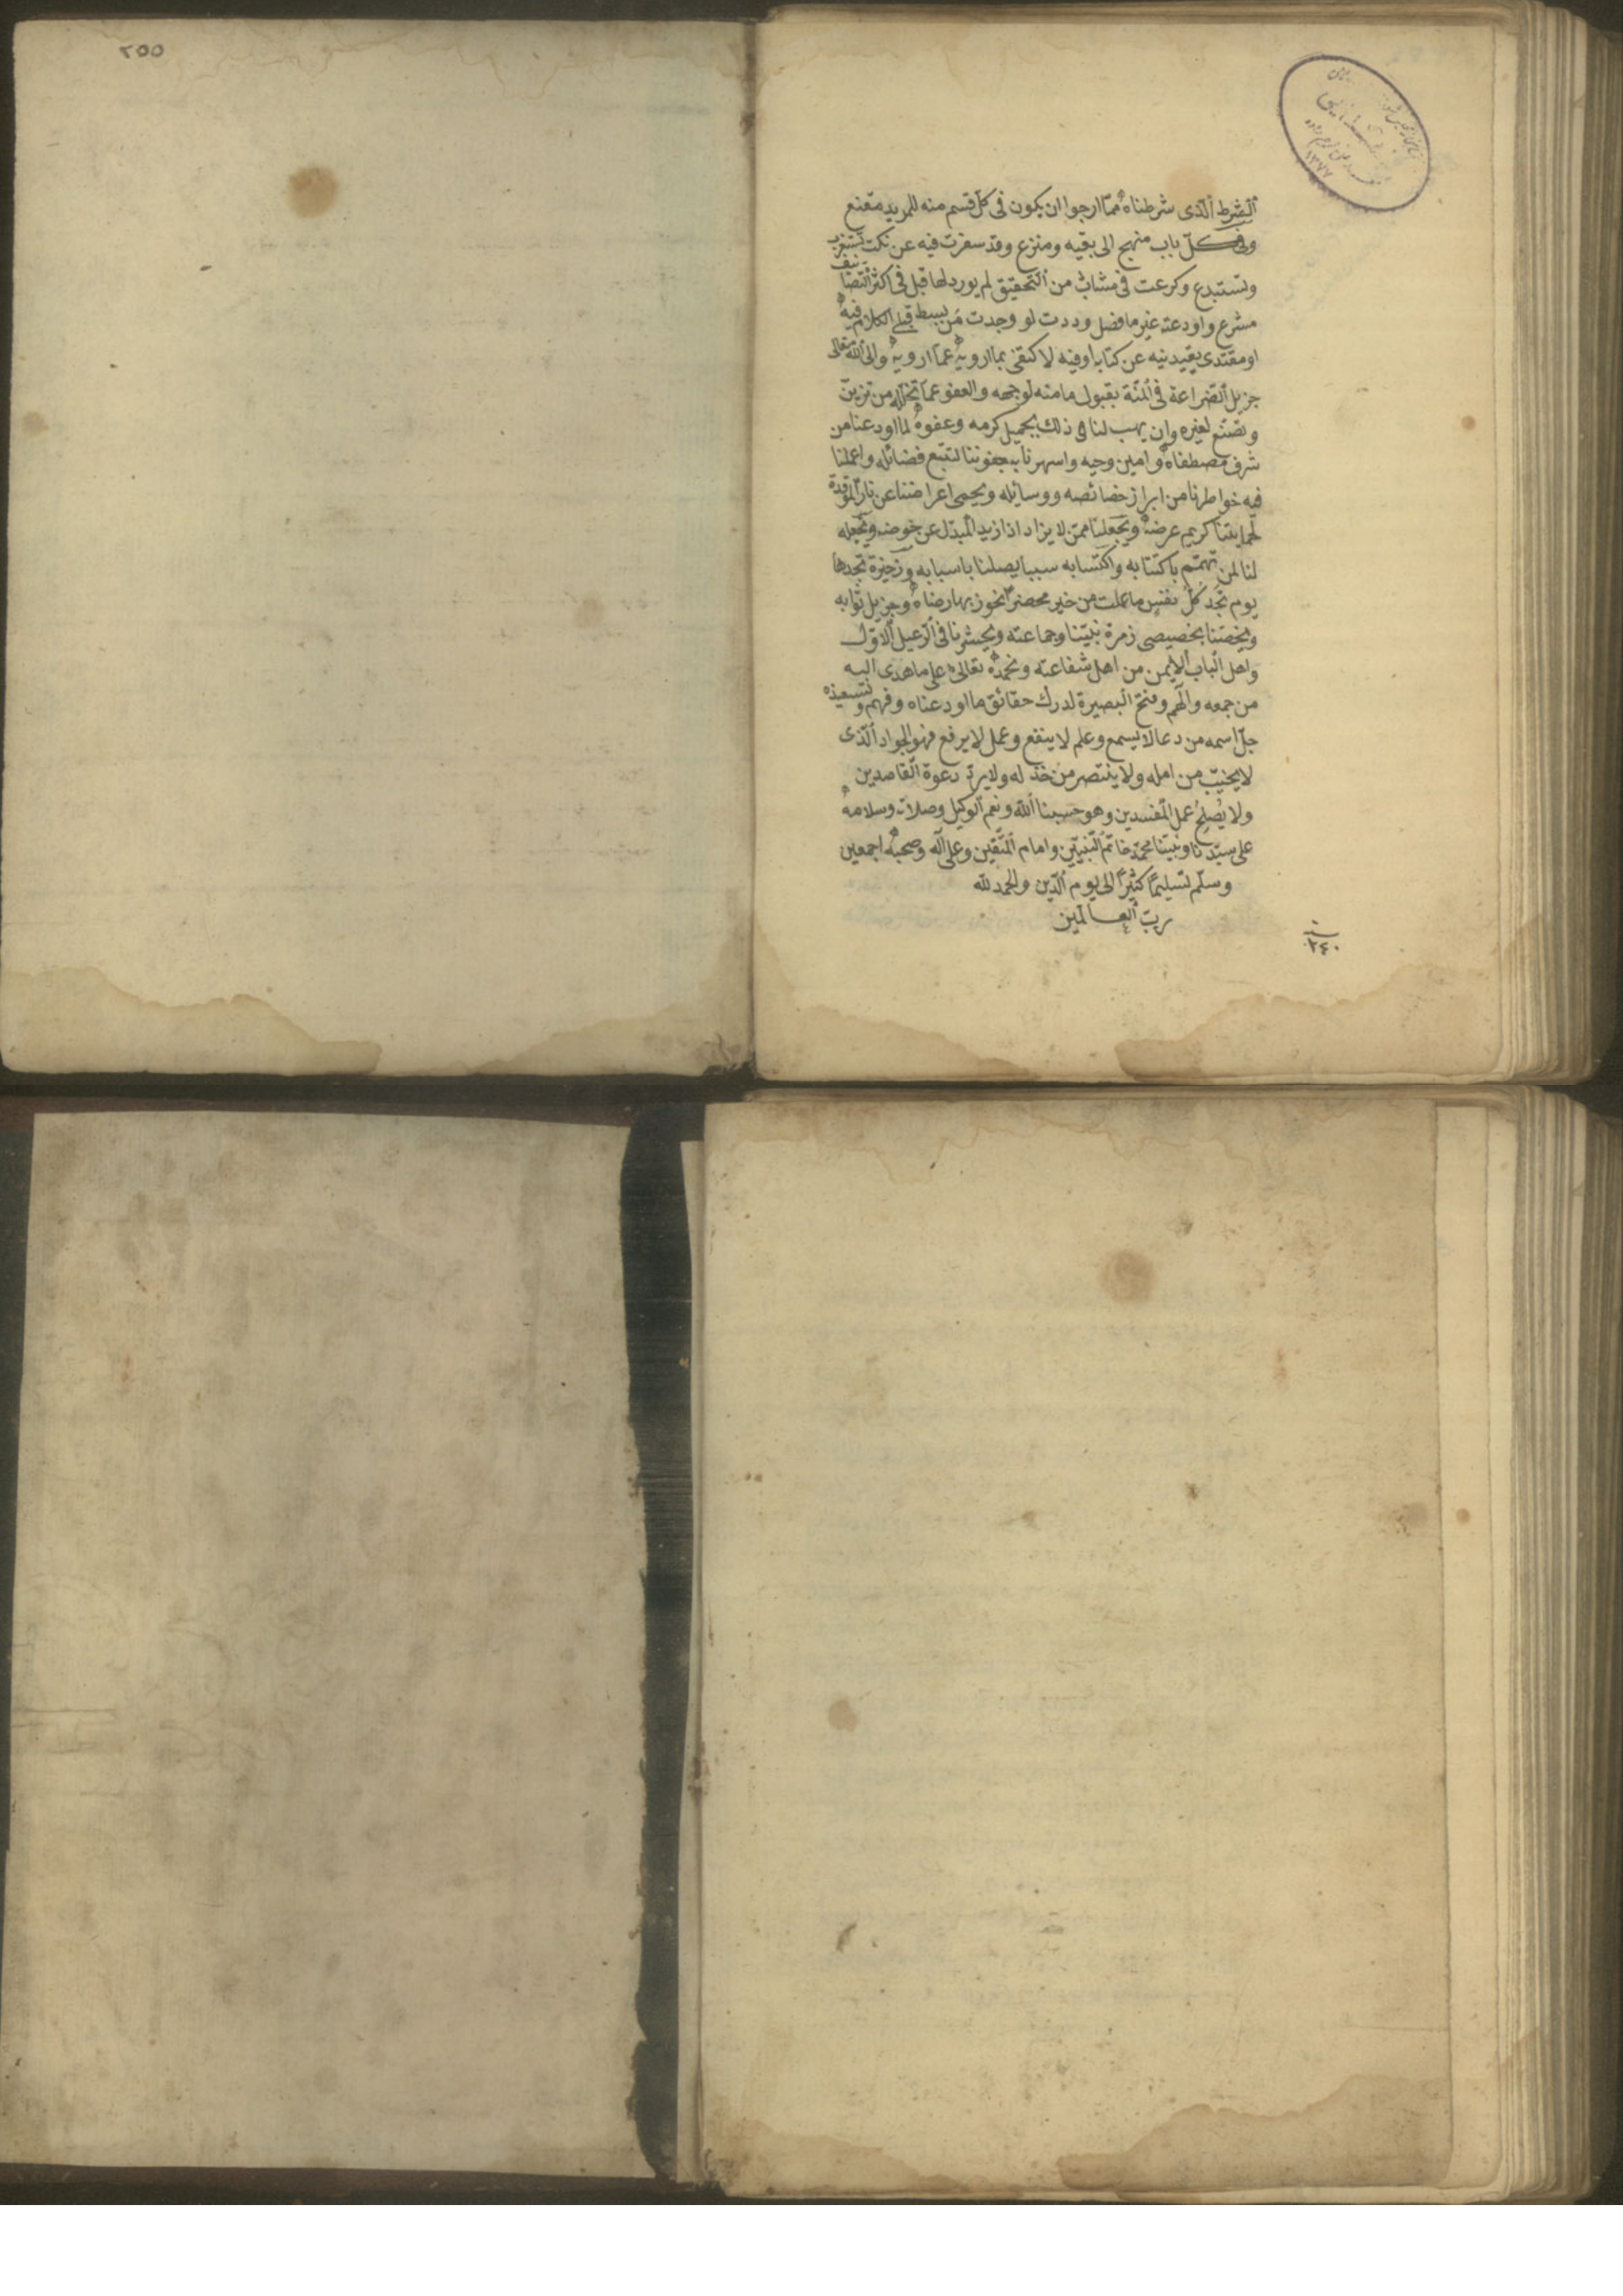 ٢٥٥
١٣٧٧
الشرط الذى شرطناه مما ارجوا ان يكون فى كل قسم منه للمريد مقنع
وفى كل باب منهج الى بقيه ومنزع وقد سفرت فيه عن نكت تستغرب
وتستبدع وكرعت فى مشاب من التحقيق لم يورد لها قبل فى اكثر التصانيف
مشرع واودعته غير ما فصل وددت لو وجدت من بسط قبلى الكلام فيه
او مقتدى يفيدنيه عن كتابه او فيه لاكتفى بما ارويه عما ارويه والى الله تعالى
جزيل الضراعة فى المنة بقبول ما منه لوجهه والعفو عما تخلله من تزين
وتصنع لغيره وان يهب لنا فى ذلك بجميل كرمه وعفوه لما اودعنا من
شرف مصطفاه وامين وحيه واسهرنا به جفوننا لتتبع فضائله واعملنا
فيه خواطرنا من ابراز خصائصه ووسايله ويحمى اعراضنا عن ناره الموقدة
لحمايتنا كريم عرضه ويجعلنا ممن لا يزاد اذا زيد المبدل عن حوضه ويجعله
لنا لمن تهمم باكتتابه واكتسابه سببا يصلنا باسبابه وذخيرة تجدها
يوم تجد كل نفس ما عملت من خير محضرا نحوز بها رضاه وجزيل ثوابه
ويخصنا بخصيصى زمرة نبينا وجماعته ويحشرنا فى الرعيل الاول
واهل الباب الايمن من اهل شفاعته ونحمده تعالى على ما هدى اليه
من جمعه والهم وفتح البصيرة لدرك حقائق ما اودعناه وفهم ونستعيذه
جل اسمه من دعا لا يسمع وعلم لا ينفع وعمل لا يرفع فهو الجواد الذى
لا يخيب من امله ولا ينتصر من خذله ولا يرد دعوة القاصدين
ولا يُصلح عمل المفسدين وهو حسبنا الله ونعم الوكيل وصلاته وسلامه
على سيدنا ونبينا محمد خاتم النبيين وامام المتقين وعلى آله وصحبه اجمعين
وسلم تسليمًا كثيرًا الى يوم الدين والحمد لله
رب العالمين
٢٤٠